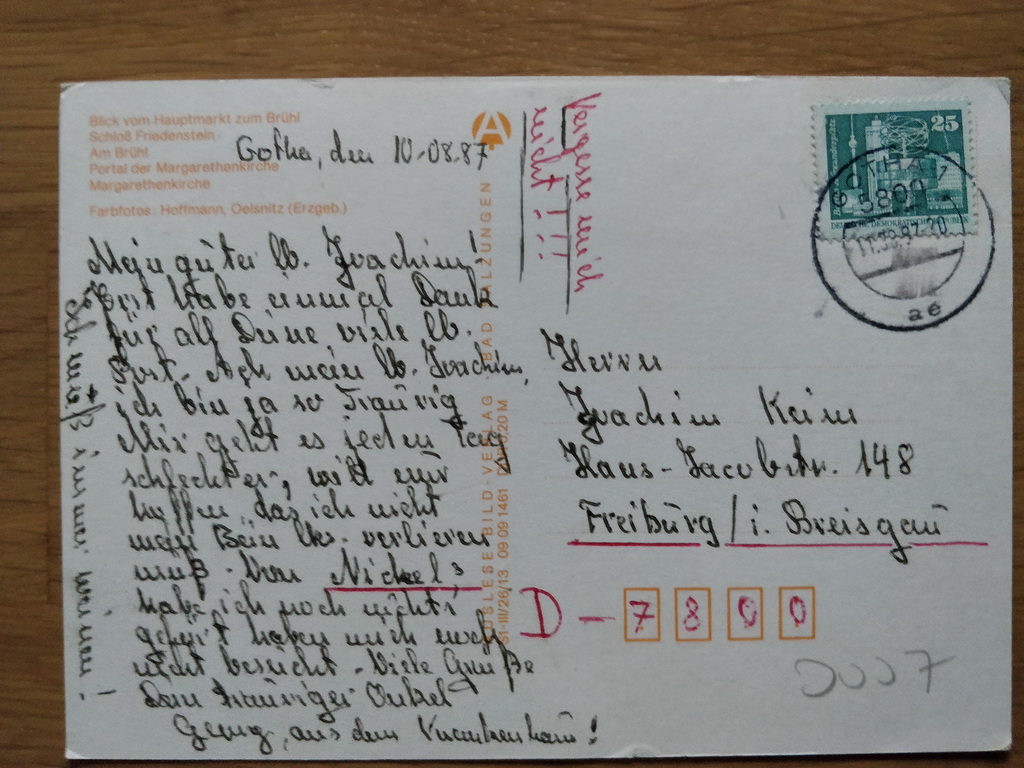 Blick vom Hauptmarkt zum Brühl
Schloß Friedenstein
Am Brühl
Portal der Margarethenkirche
Margarethenkirche
Farbfotos: Hoffmann, Oelsnitz (Erzgeb.)
Gotha, den 10.08.87
Mein guter lb. Joachim!
habe einmal Dank
für all Deine viele lb.
Post. Ach mein lb. Joachim,
ich bin ja so traurig
Mir geht es jeden Tag
schlechter, will nur
hoffen das ich nicht
mein Bein lks. verlieren
muß. Von Nickel's
habe ich noch nichts
gehört haben mich noch
nicht besucht. Viele Grüße
Dein trauriger Onkel
Georg, aus dem Krankenhaus!
immer weinen!
Vergesse mich
nicht!!!
A
AUSLESE-BILD-VERLAG BAD SALZUNGEN
III/26/13 09 09 1461 0,20 M
25
GOTHA 1
5800
11.-8.87-20
ae
Herrn
Joachim Keim
Haus-Jacobstr. 148
Freiburg / i. Breisgau
D - 7800
0007